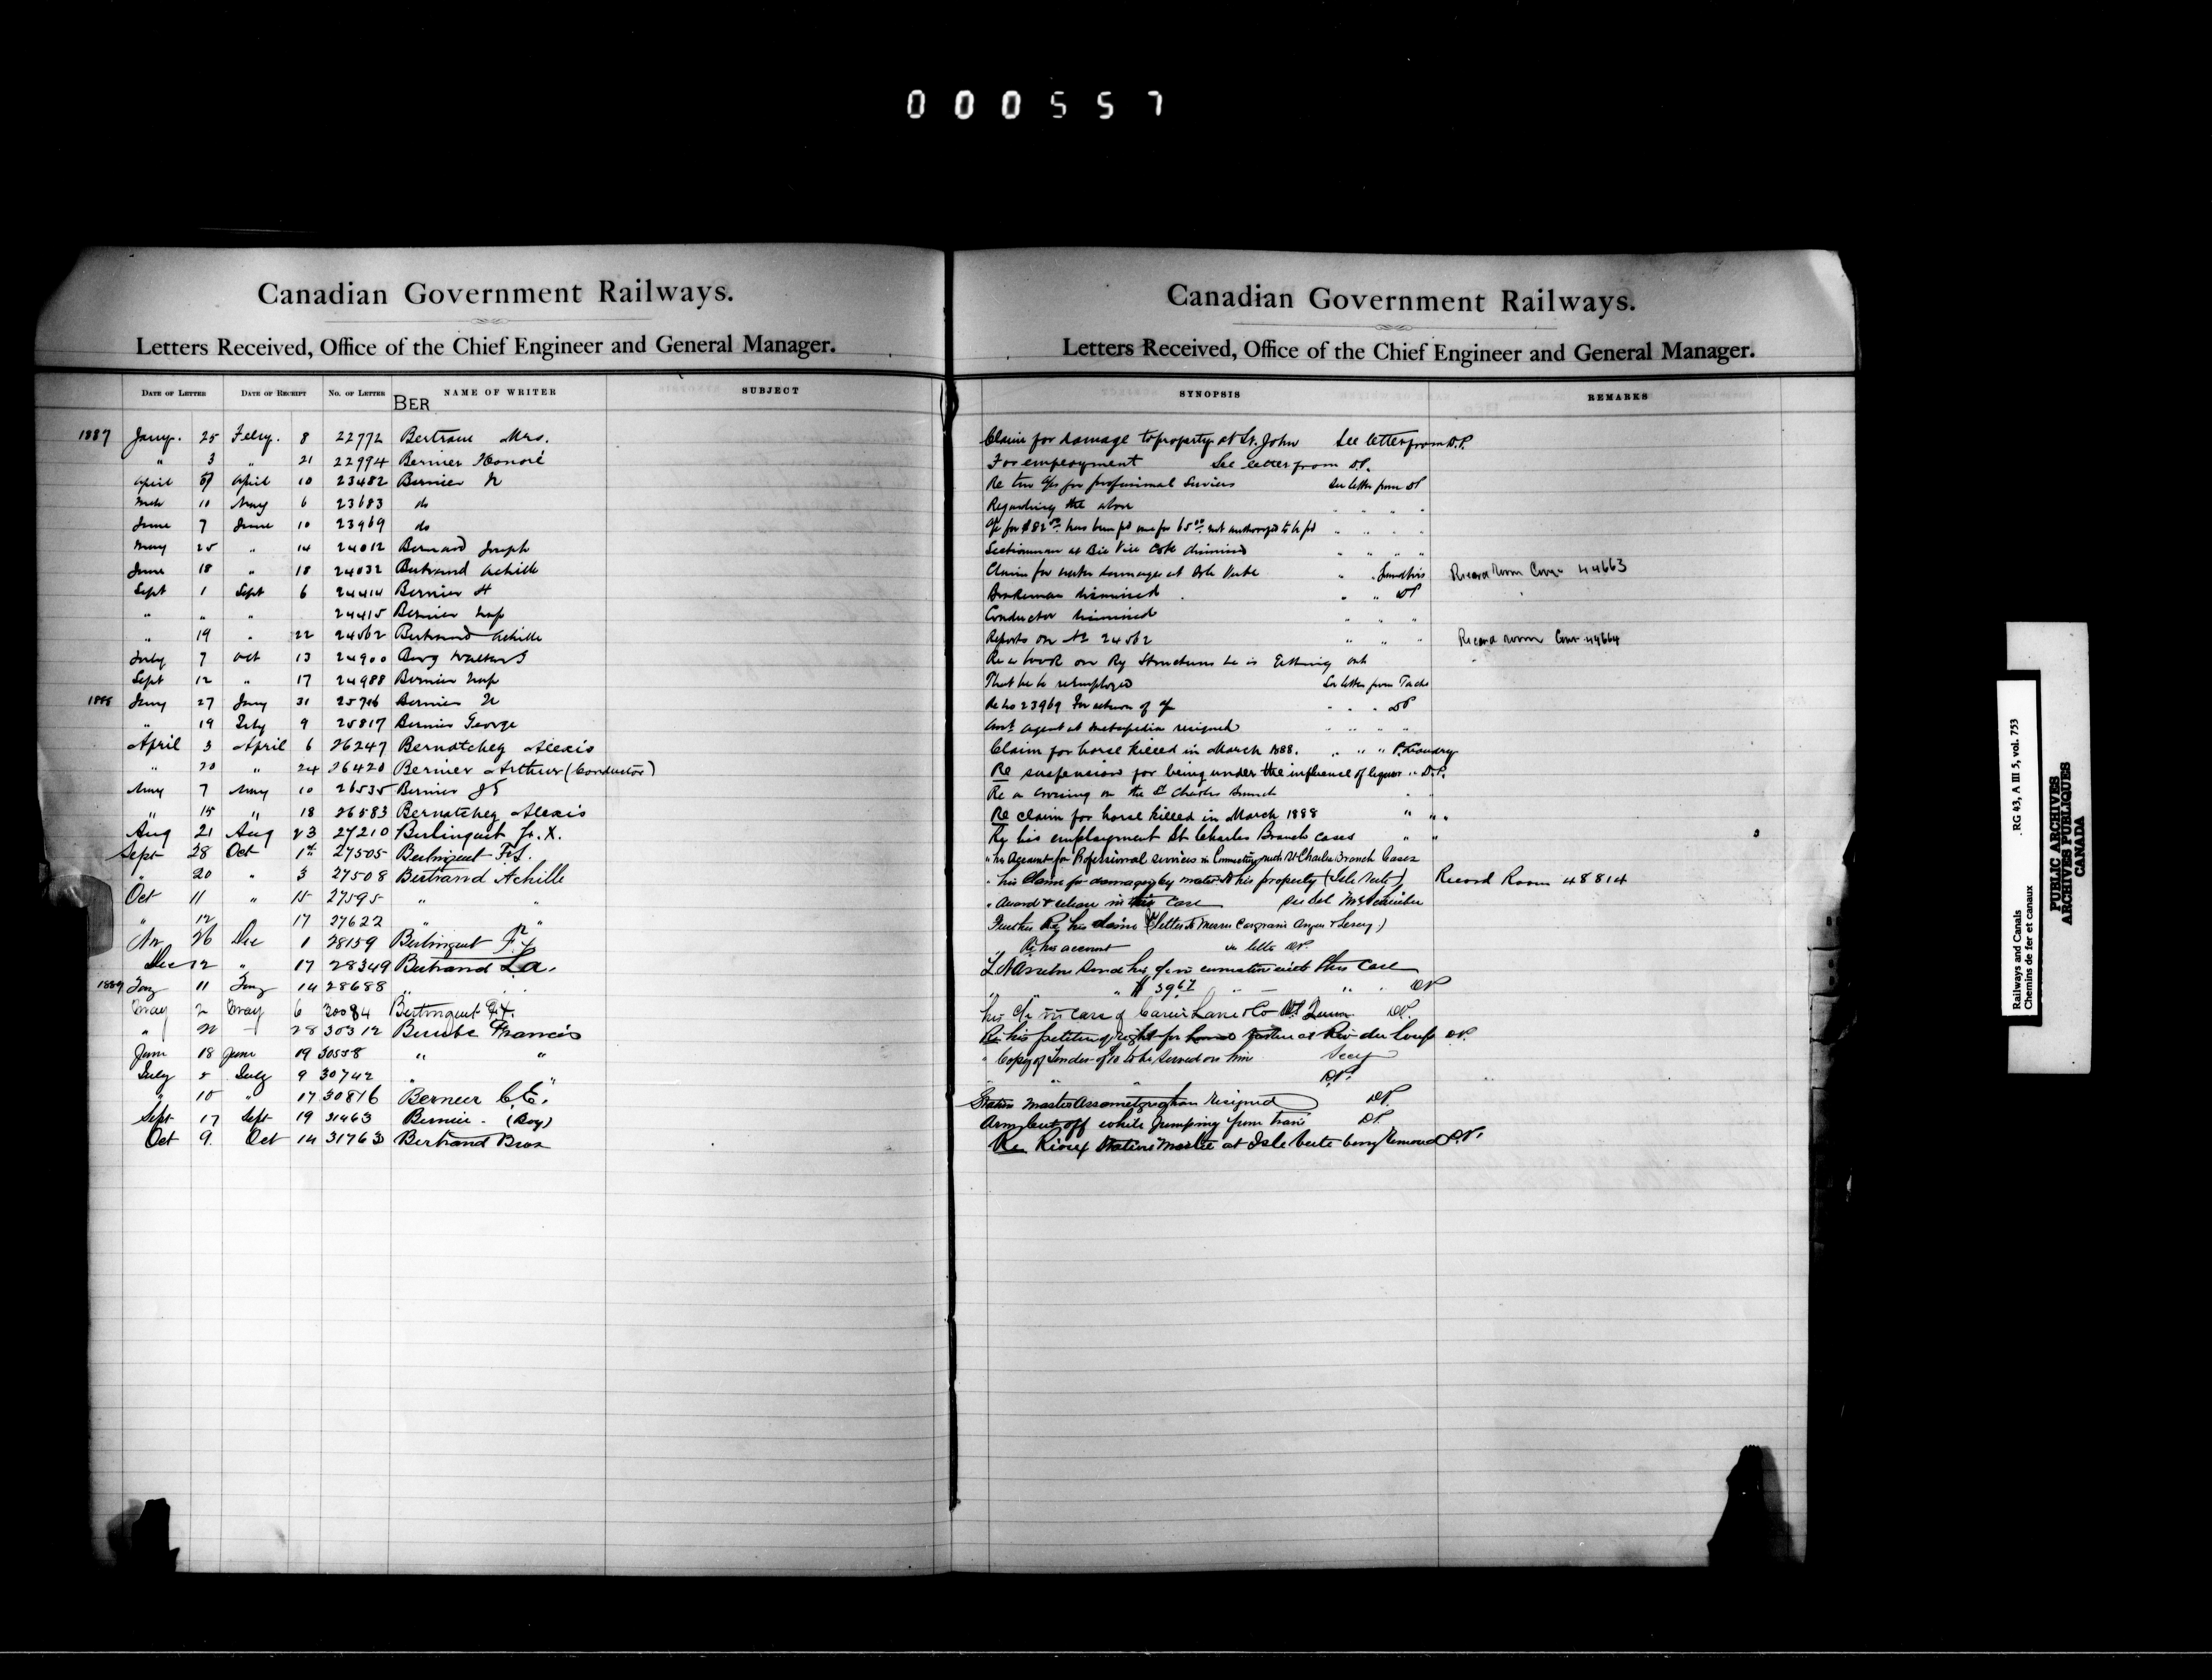 000557
Canadian Government Railways.
Letters Received, Office of the Chief Engineer and General Manager.
DATE OF LETTER DATE OF RECEIPT No. OF LETTER NAME OF WRITER SUBJECT
BER
1887 Jany. 25 Feby. 8 22772 Bertram Mrs.
" 3 " 21 22994 Bernier Honoré
April April 10 23482 Bernier N
Mch 10 May 6 23683 do
June 7 June 10 23969 do
May 25 " 14 24012 Bernard Joseph
June 18 " 18 24032 Bertrand Achille
Sept 1 Sept 6 24414 Bernier H
" " " 24415 Bernier Nap
" 19 " 22 24562 Bertrand Achille
July 7 Oct 13 24900 Berg Walter G
Sept 12 " 17 24988 Bernier Nap
1888 Jany 27 Jany 31 25716 Bernier N
" 19 Feby 9 25817 Bernier George
April 3 April 6 26247 Bernatchey Alexis
" 20 " 24 26420 Bernier Arthur (Conductor)
May 7 May 10 26535 Bernier J E
" 15 " 18 26583 Bernatchey Alexis
Aug 21 Aug 23 27210 Berlinguet F. X.
Sept 28 Oct 1st 27505 Berlinguet F.X.
" 20 " 3 27508 Bertrand Achille
Oct 11 " 15 27595 " "
" 12 17 27622 " "
Nov 26 Dec 1 28159 Berlinguet F. X
Dec 12 " 17 28349 Bertrand L.a.
1889 Jany 11 Jany 14 28688 " "
May 2 May 6 30084 Berlinguet F.X.
" 22 28 30312 Berube Francis
June 18 June 19 30558 " "
July 5 July 9 30742 " "
" 15 " 17 30816 Bernier C.E.
Sept 17 Sept 19 31463 Bernier. (Boy)
Oct 9. Oct 14 31763 Bertrand Bros
Canadian Government Railways.
Letters Received, Office of the Chief Engineer and General Manager.
SYNOPSIS REMARKS
Claim for damage to property at St. John See letter from D.P.
For employment See letter from D.P.
Re two a/cs for professional services See letter from DP
Regarding the above " " " "
a/c for $82.00 has been pd one for 65.00 not authorized to be pd " " " "
Sectionman at Bic dismissed " " " "
Claim for water damages at Isle Verte " " Record Room Cover 44663
Brakeman dismissed " " DP
Conductor dismissed " " "
Reports on No 24562 " " " Record room Cover 44664
Re a book on Ry Structures he is getting out
That he be reemployed See letter from Taché
Re no 23969 For return of a/c " " " DP
agent at Metapedia resigned " " " "
Claim for horse killed in March 1888. " " " P. Landry
Re suspension for being under the influence of liquor " D.P.
Re a crossing on the St Charles Branch " "
Re claim for horse killed in March 1888 " " "
Re his employment St. Charles Branch cases " "
" his Account for Professional services in Connection with St Charles Branch Cases
" his Claim for damages by water to his property (Isle Verte) Record Room 48814
" Award & release in this Case See Let Mr Schreiber
Further Re his claim (letter to Messrs Casgrain Angers & )
Re his account See letter DP.
his a/c in connection with this Case
" " " $ 39.67 " " " DP
his a/c in Case of Carrier Laine & Co DP.
Re his right for at Riv du Loup DP.
" Copy of Tender of to be Served on him Secy
" " " D.P.
Station Master Assametquaghan resigned DP.
Arm Cut off while Jumping from train DP.
Re Rioux Station Master at Isle Verte being removed D.P.
Railways and Canals RG 43, A III 5, vol. 753
Chemins de fer et canaux
PUBLIC ARCHIVES
ARCHIVES PUBLIQUES
CANADA